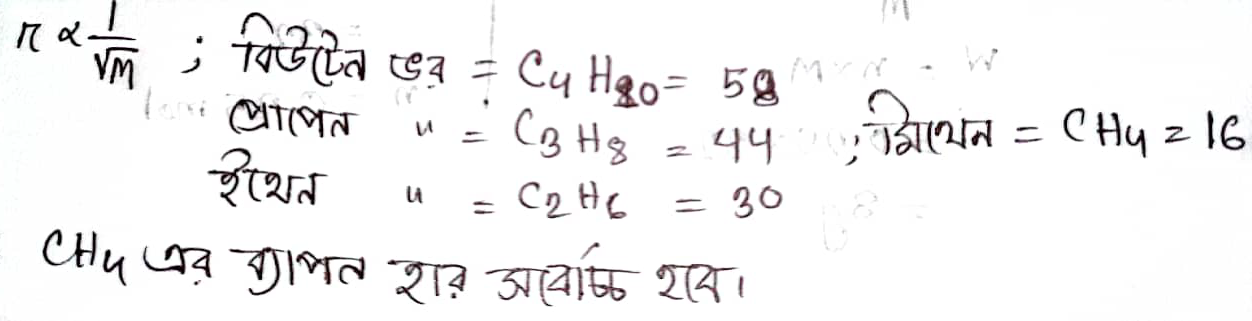 r ∝ 1/√M ; বিউটেন ভর = C₄H₁₀ = 58
প্রোপেন " = C₃H₈ = 44 ; মিথেন = CH₄ = 16
ইথেন " = C₂H₆ = 30
CH₄ এর ব্যাপন হার সর্বোচ্চ হবে।